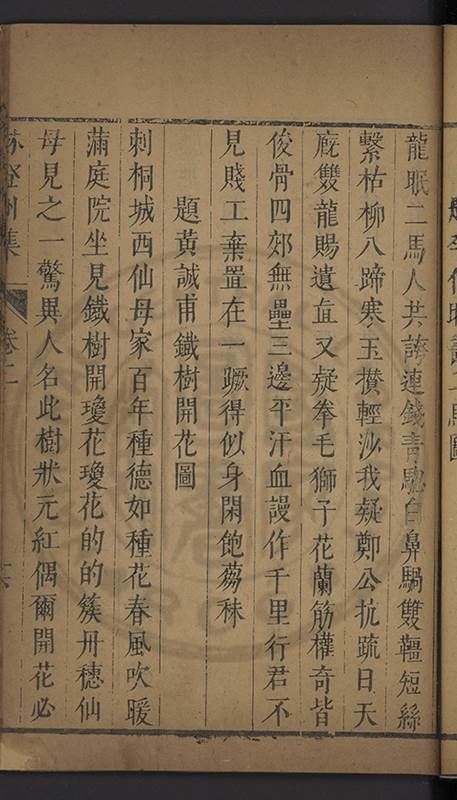 龍眠二馬人共誇連錢青驄白鼻騧雙韁短絲
繫枯柳八蹄寒玉攢輕沙我疑鄭公抗疏日天
廐雙龍賜遺直又疑拳毛獅子花蘭筋權奇皆
俊骨四郊無壘三邊平汗血謾作千里行君不
見賤工棄置在一蹶得似身閑飽芻秣
題黃誠甫鐵樹開花圖
刺桐城西仙母家百年種德如種花春風吹暖
滿庭院坐見鐵樹開瓊花瓊花的的簇丹穗仙
母見之一驚異人名此樹狀元紅偶爾開花必
卷二